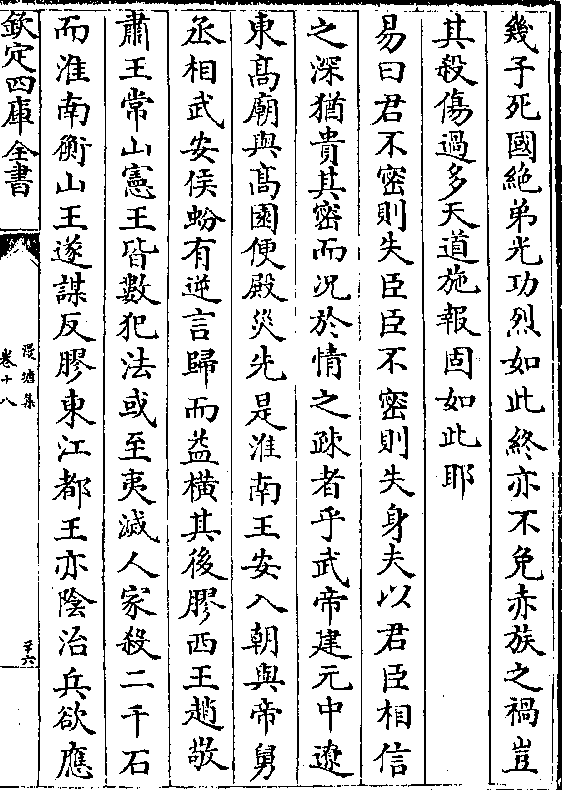 幾子死國絶弟光功烈如此終亦不免赤族之禍豈
其殺傷過多天道施報固如此耶
易曰君不密則失臣臣不密則失身夫以君臣相信
之深猶貴其密而况於情之疎者乎武帝建元中遼
東髙廟與髙園便殿災先是淮南王安入朝與帝舅
丞相武安侯蚡有逆言歸而益横其後膠西王趙敬
肅王常山憲王皆數犯法或至夷滅人家殺二千石
而淮南衡山王遂謀反膠東江都王亦陰治兵欲應
欽定四庫全書
漫塘集
卷十八